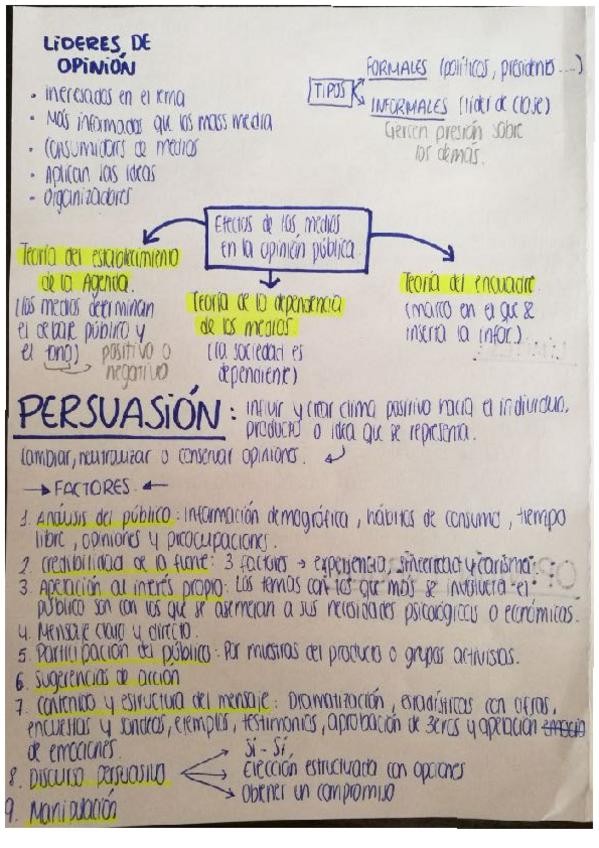 LÍDERES DE
OPINIÓN
• Interesados en el tema
• Más informados que los mass media
• Consumidores de medios
• Aplican las ideas
• Organizadores
TIPOS
FORMALES (políticos, presidentes ....)
INFORMALES (líder de clase)
Ejercen presión sobre
los demás.
Efectos de los medios
en la opinión pública.
Teoría del establecimiento
de la Agenda.
(los medios determinan
el debate público y
el tono) positivo o
negativo
Teoría de la dependencia
de los medios.
(la sociedad es
dependiente)
Teoría del encuadre.
(marco en el que se
inserta la infor.)
PERSUASIÓN: influir y crear clima positivo hacia el individuo,
producto o idea que se representa.
Cambiar, neutralizar o conservar opiniones.
→ FACTORES ←
1. Análisis del público: información demográfica, hábitos de consumo, tiempo
libre, opiniones y preocupaciones.
2. Credibilidad de la fuente: 3 factores → experiencia, sinceridad y carisma.
3. Apelación al interés propio: Los temas con los que más se involucra el
público son con los que se asemejan a sus necesidades psicológicas o económicas.
4. Mensaje claro y directo.
5. Participación del público: Por muestras del producto o grupos activistas.
6. Sugerencias de acción
7. Contenido y estructura del mensaje: Dramatización, estadísticas con cifras,
encuestas y sondeos, ejemplos, testimonios, aprobación de 3eros y apelación
de emociones.
8. Discurso persuasivo
Sí - Sí,
Elección estructurada con opciones
Obtener un compromiso
9. Manipulación